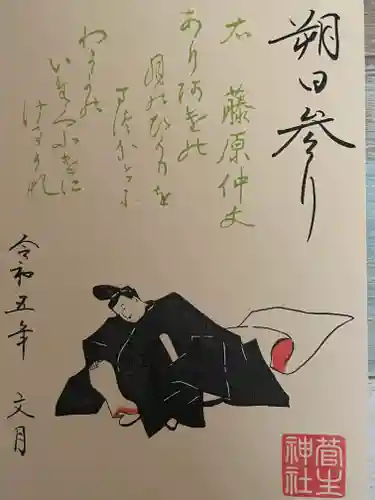 朔日参り
右 藤原仲文
あり阿けの
月のひかりを
まつほとに
わかよの
けるかな
令和五年 文月
菅生
神社